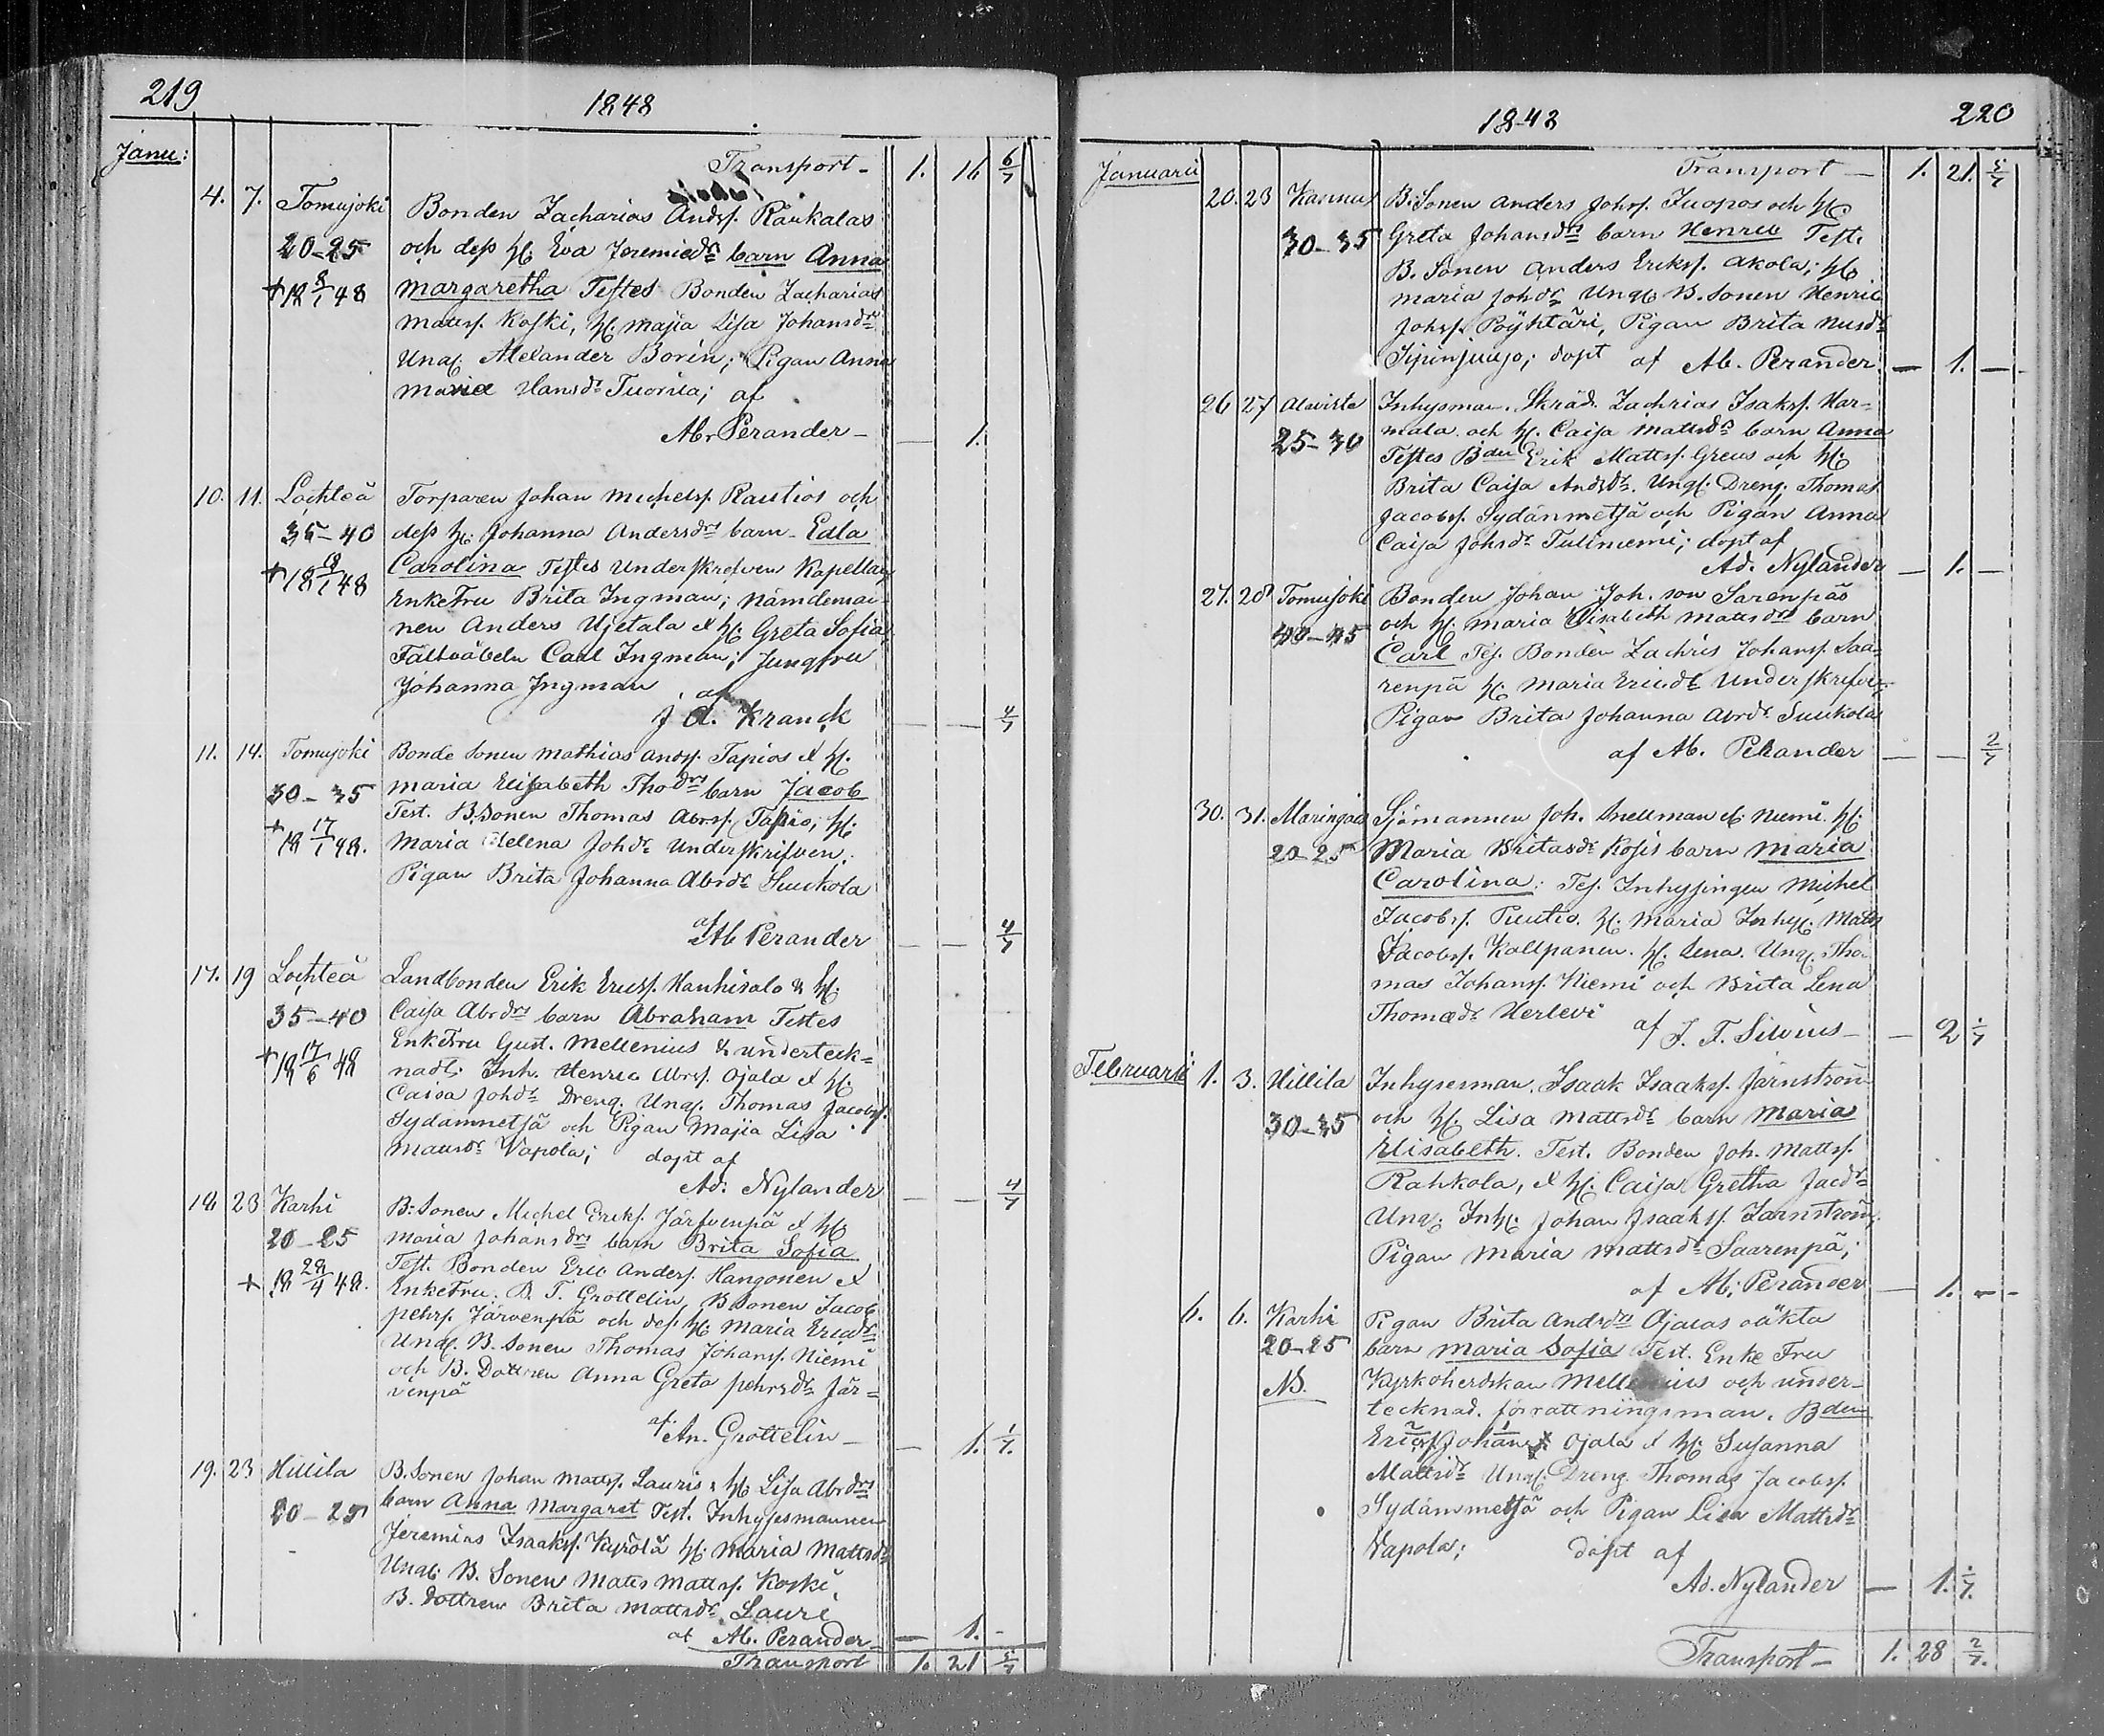 219
1848
Janu:
Transport -
1. 16 6/7
4. 7. Tomujoki Bonden Zacharias Andsf. Raukalas
20-25 och dess H. Eva Jeremiedr barn Anna
+18 8/1 48 Margaretha Testes Bonden Zacharias
Mattsf. Koski, H. Majia Lisa Johansdr
Ungl. Alexander Borin; Pigan Anna
Maria Hansdr Tuorila; af
Ab. Perander - — 1.
10. 11. Lochteå Torparen Johan Michelsf. Rastios och
35-40 dess H. Johanna Andersdrs barn Edla
+18 18/1 48 Carolina Testes Underskrefven Kapellan,
EnkeFru Brita Ingman; Nämdeman-
nen Anders Ujetala & H. Greta Sofia
Fältväbeln Carl Ingman; Jungfru
Johanna Ingman af
J A. Kranck — — 4/7
11. 14. Tomujoki Bonde Sonen Mathias Andsf. Tapios & H.
30-35 Maria Elisabeth Thodrs barn Jacob
+18 17/1 48. Test. B. Sonen Thomas Abrsf. Tapio, H.
Maria Helena Johdr Underskrifven,
Pigan Brita Johanna Abrdr Suukola
af Ab Perander — — 4/7
17. 19 Lochteå Landbonden Erik Ericsf. Hanhisalo & H.
35-40 Caisa Abrdrs barn Abraham Testes
+18 17/6 48 EnkeFru Gust. Mellenius & underteck=
nad; Inh. Henric Abrsf. Ojala & H.
Caisa Johdr Dreng. Ungl. Thomas Jacobsf.
Sydänmetsä och Pigan Majia Lisa
Mattsdr Vapola; döpt af
Ad. Nylander — — 4/7
18 23 Karhi B: Sonen Michel Eriksf. Järfvenpä & H.
20-25 Maria Johansdrs barn Brita Sofia
+ 18 28/4 48. Test. Bonden Eric Andersf. Hangonen &
EnkeFru. B. T. Grottelin, B Sonen Jacob
Pehrsf. Järvenpä och dess H. Maria Ericsdr
Ungl. B. Sonen Thomas Johansf. Niemi
och B. Dottren Anna Greta Pehrsdr Jär=
venpä
af An. Grottelin - — 1. 1/7.
19. 23 Hillila B. Sonen Johan Mattsf. Lauris & H. Lisa Abrdrs
20-25 barn Anna Margaret Test. Inhysesmannen
Jeremias Isaaksf. Kyrölä H. Maria Mattsdr
Ungl. B. Sonen Matts Mattsf. Koski
B. Dottren Brita Mattsdr Lauri
af Ab. Perander — 1. -
Transport 1. 21 5/7
1848
220
Januarii
Transport — 1. 21. 5/7
20. 23 Kannus B: Sonen Anders Johsf. Juopos och H.
30-35 Greta Johansdrs barn Henric Test.
B. Sonen Anders Eriksf. Akola; H.
Maria Johdr Ungl. B. Sonen Henric
Johsf. Pöyhtäri, Pigan Brita
döpt af Ab. Perander — 1. —
26 27 Alaviirte Inhysman. Skräd. Zachrias Isaksf. Har=
25-30 mala och H. Caisa Mattsdrs barn Anna
Testes Bden Erik Mattsf. Greus och H.
Brita Caisa Andsdr. Ungl. Dreng. Thomas
Jacobsf. Sydänmetsä och Pigan Anna
Caisa Johsdr Tuliniemi; döpt af
Ad. Nylander — 1. —
27. 28 Tomujoki Bonden Johan Joh. son Sarenpäs
40-45 och H. Maria Elisabeth Mattsdrs barn
Carl Tes. Bonden Zachris Johansf. Saa-
renpä H. Maria Ericdr Underskrefven
Pigan Brita Johanna Abrdr. Suukola
af Ab. Perander — — 2/7
30. 31. Maringais Sjömannen Joh. Snellman el. Niemi. H.
20-25 Maria Britasdr Kosis barn Maria
Carolina: Tes. Inhysingen Michel
Jacobsf. Puutio. H. Maria Inhys. Matts
Jacobsf. Kallpanen. H. Lena. Ungl. Tho-
mas Johansf. Niemi och Brita Lena
Thomædr Herlevi
af J. F. Silvius - — 2 1/7
Februarii 1. 3. Hillila Inhysesman. Isaak Isaaksf. Järnström
30-35 och H. Lisa Mattsdr barn Maria
Elisabeth. Test. Bonden Joh. Mattsf.
Rahkola, & H. Caisa Gretha Jacdr
Ungl. Inh. Johan Isaaksf. Jarnström,
Pigan Maria Mattsdr Saarenpä;
af Ab. Perander — 1. —
6. 6. Karhi Pigan Brita Andrsdrs Ojalas oäkta
20-25 barn Maria Sofia Test. Enke Fru
NB. Kyrkoherdskan Mellenius och under-
tecknad. förrättningsman. Bden
Ericsf. Johan Ojala & H. Susanna
Mattsdr Ungl. Dreng Thomas Jacobsf.
Sydänmetsä och Pigan Lisa Mattsdr
Vapola; döpt af
Ad. Nylander — 1. 1/7.
Transport - 1. 28 2/7.